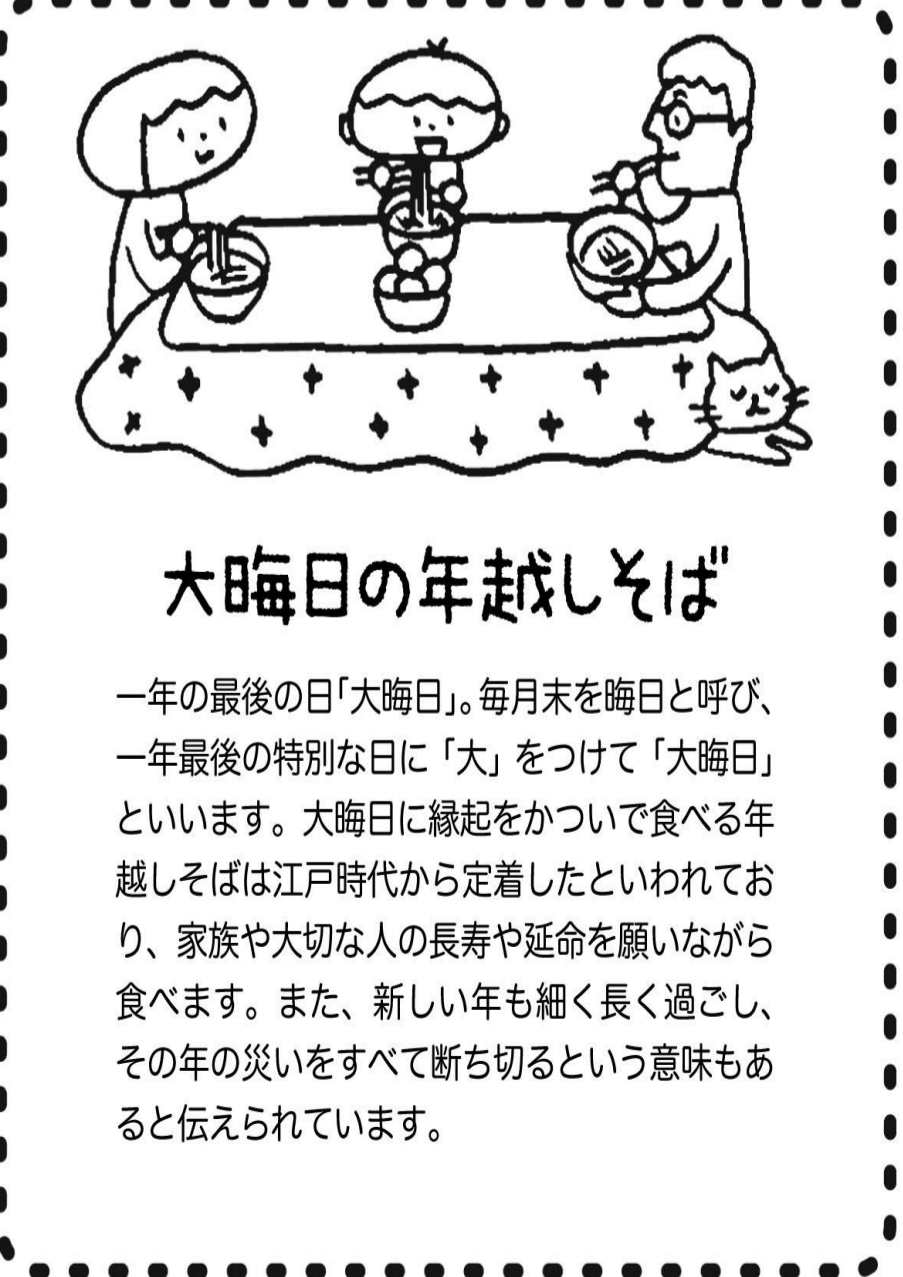 大晦日の年越しそば
一年の最後の日「大晦日」。毎月末を晦日と呼び、
一年最後の特別な日に「大」をつけて「大晦日」
といいます。大晦日に縁起をかついで食べる年
越しそばは江戸時代から定着したといわれてお
り、家族や大切な人の長寿や延命を願いながら
食べます。また、新しい年も細く長く過ごし、
その年の災いをすべて断ち切るという意味もあ
ると伝えられています。